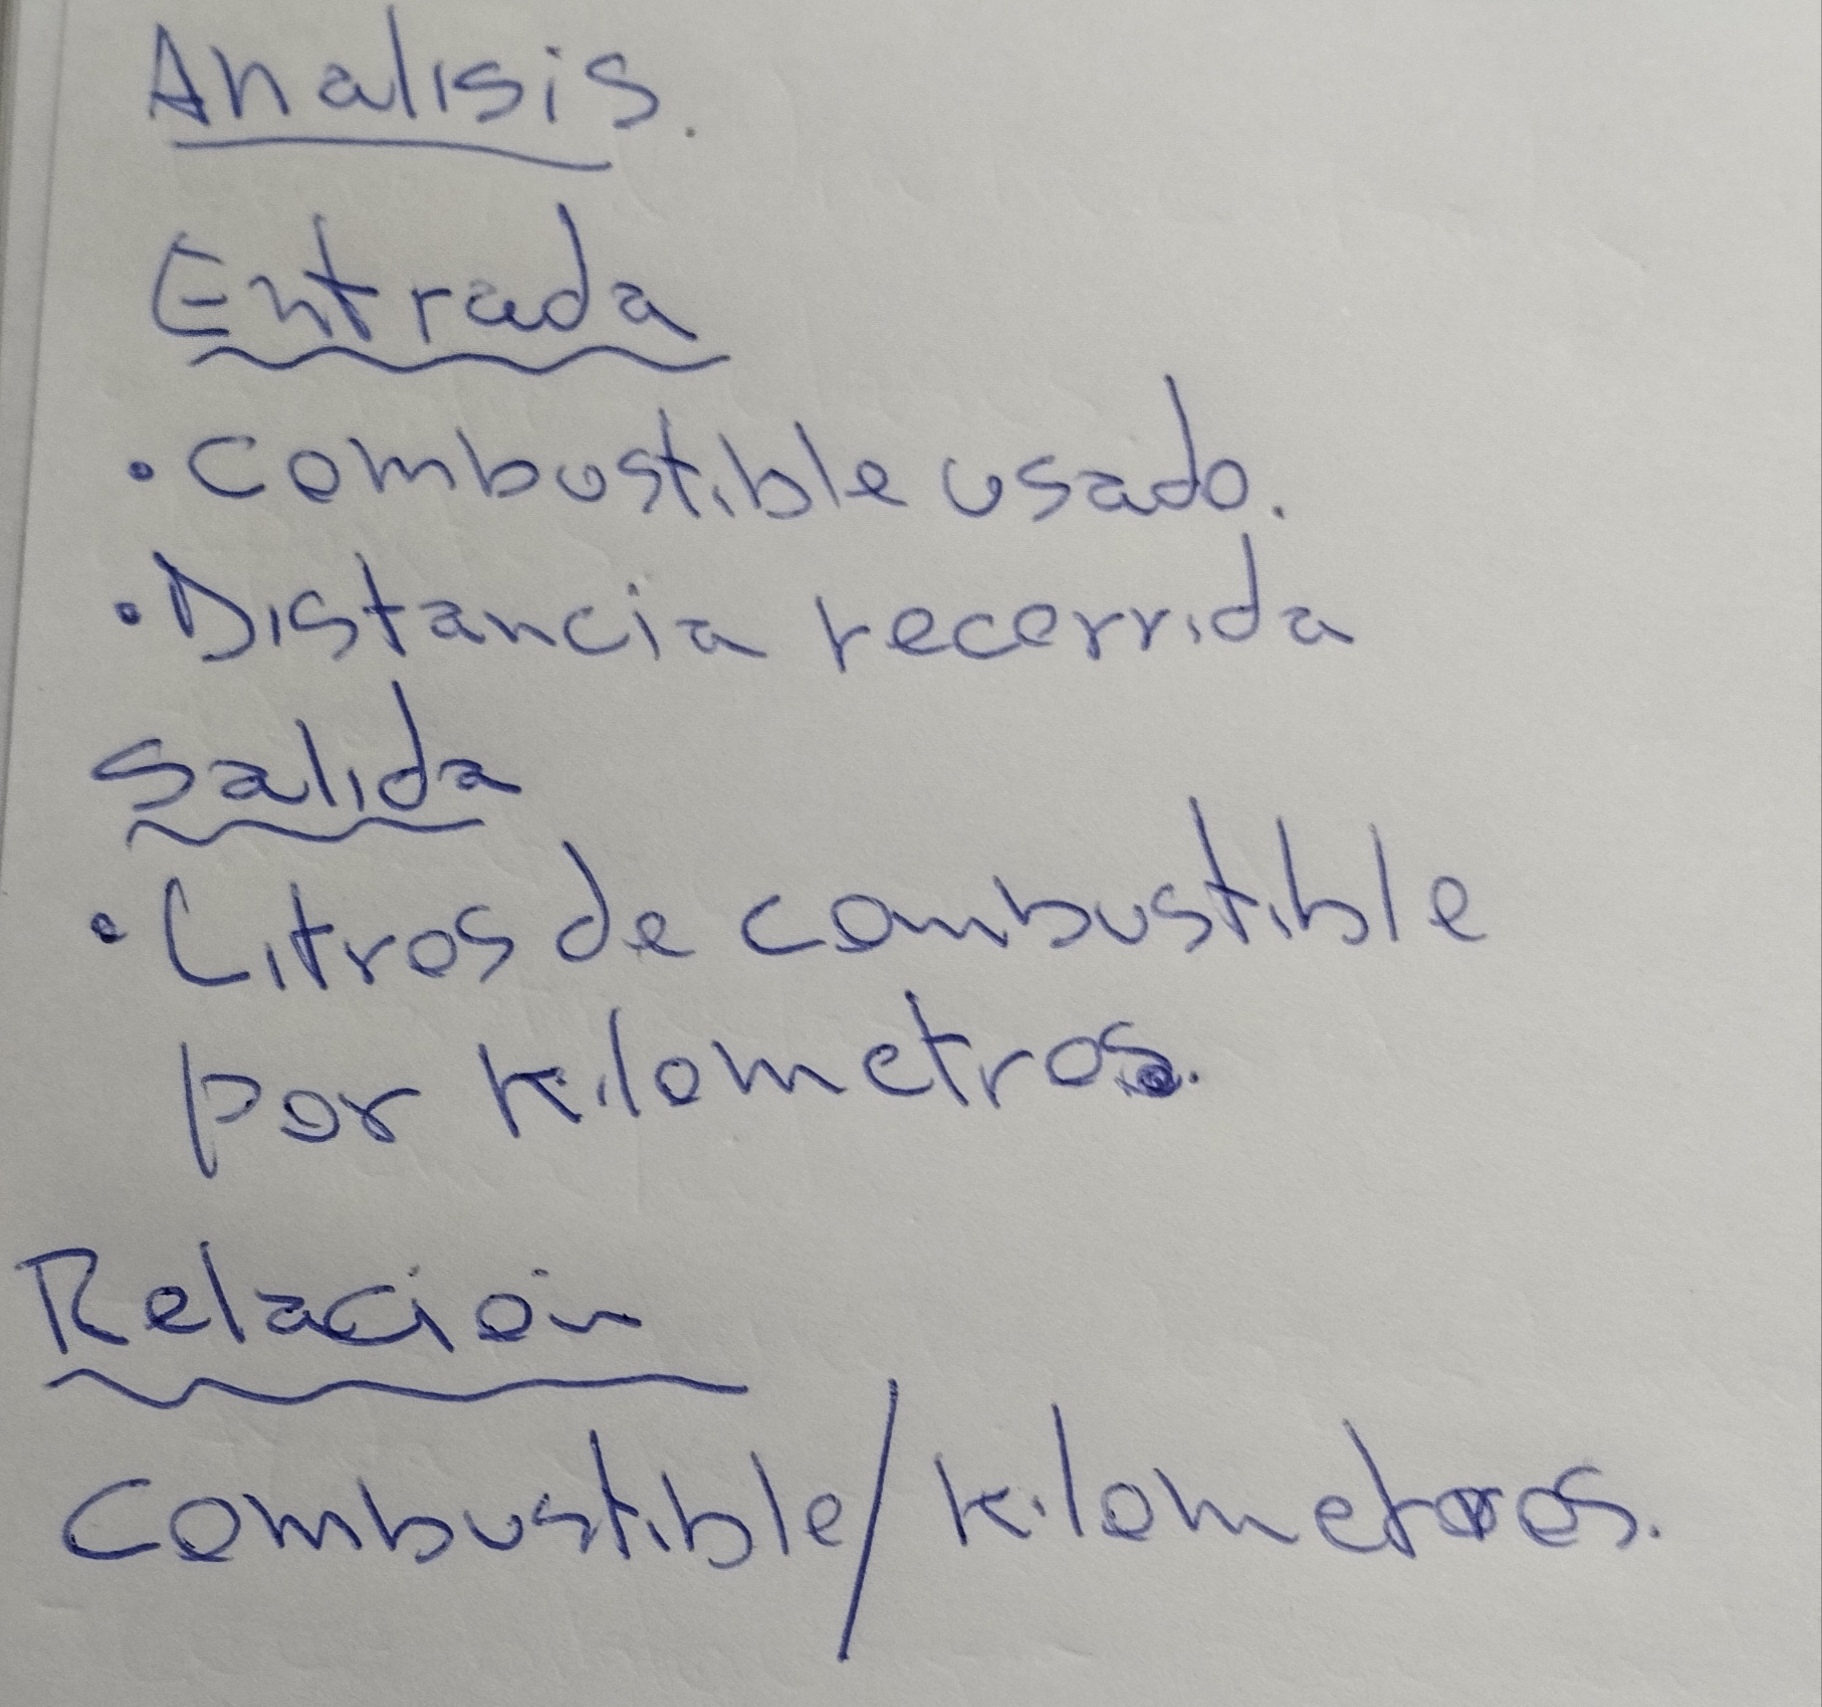 Analisis.
Entrada
• Combustible usado.
• Distancia recorrida
Salida
• Litros de combustible
por kilometros.
Relacion
Combustible/kilometros.